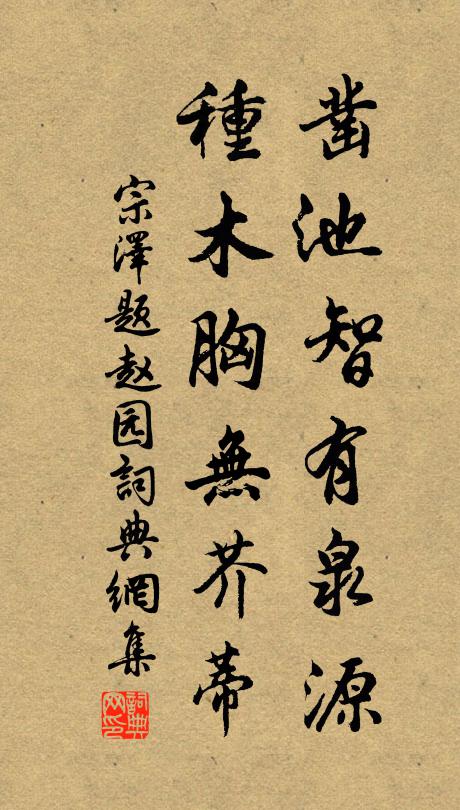 凿池智有泉源
種木胸無芥蒂
宗澤題赵园詞典網集
詞典网印